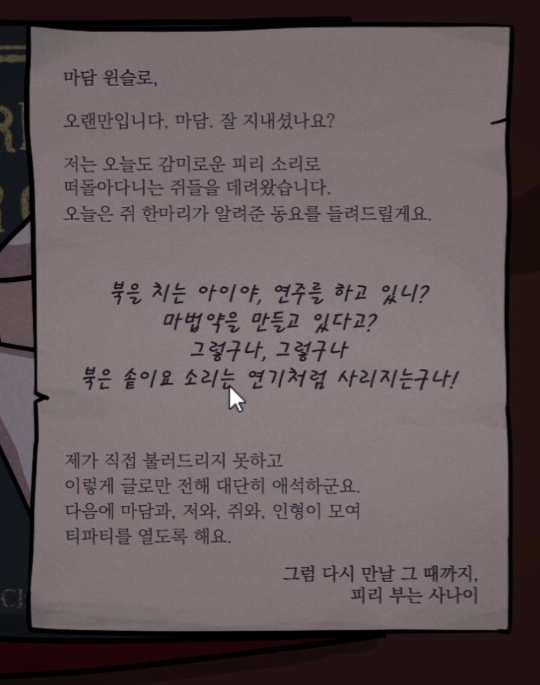 마담 윈슬로,
오랜만입니다, 마담. 잘 지내셨나요?
저는 오늘도 감미로운 피리 소리로
떠돌아다니는 쥐들을 데려왔습니다.
오늘은 쥐 한마리가 알려준 동요를 들려드릴게요.
북을 치는 아이야, 연주를 하고 있니?
마법약을 만들고 있다고?
그렇구나, 그렇구나
북은 솥이요 소리는 연기처럼 사라지는구나!
제가 직접 불러드리지 못하고
이렇게 글로만 전해 대단히 애석하군요.
다음에 마담과, 저와, 쥐와, 인형이 모여
티파티를 열도록 해요.
그럼 다시 만날 그 때까지,
피리 부는 사나이